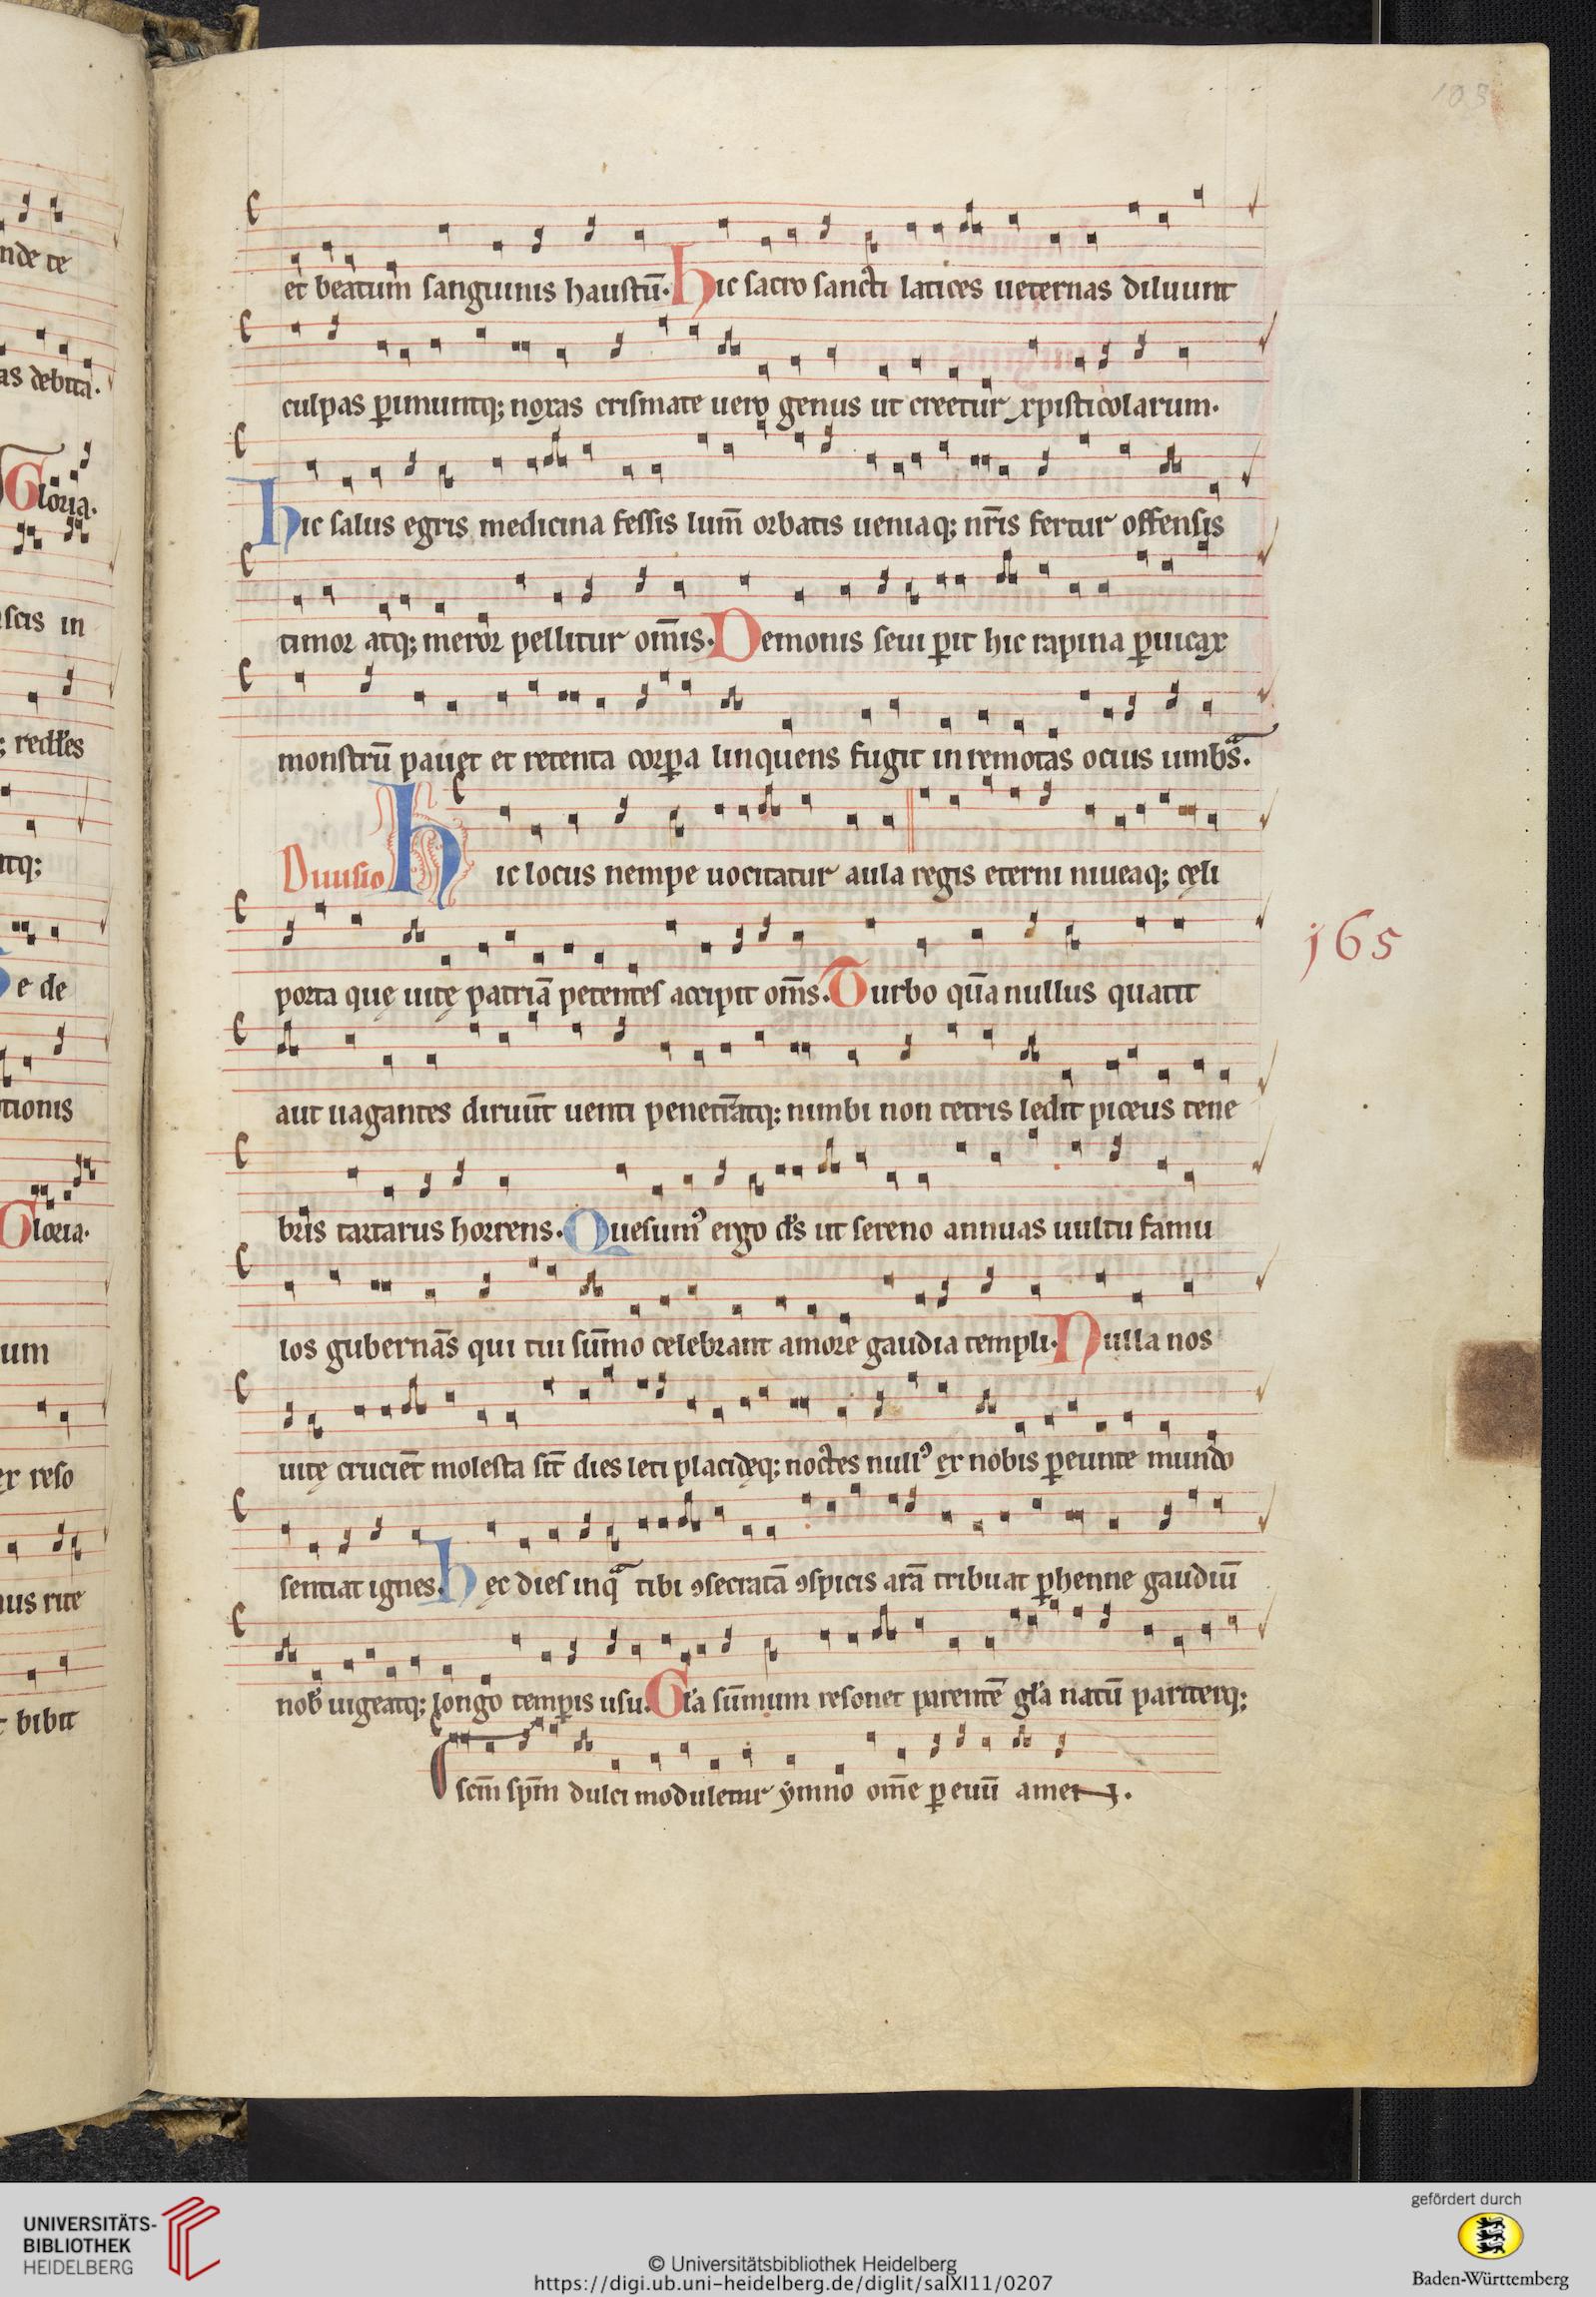 103
et beatum sanguinis haustū. Hic sacro sancti latices ueternas diluunt
culpas ꝑimuntq; noxas crismate uero genus ut creetur xpisticolarum.
Hic salus egris medicina fessis lum̄ orbatis ueniaq; nr̄is fertur offensis
timor atq; meror pellitur om̄is. Demonis seui ꝑit hic rapina ꝑuicax
monstrū pauet et retenta corꝑa linquens fugit in remotas ocius umbᵃs.
Diuisio Hic locus nempe uocitatur aula regis eterni niueaq; cęli
porta quę uitę patriā petentes accipit om̄s. Turbo quā nullus quatit
aut uagantes diruūt uenti penetrātq; nimbi non tetris ledit piceus tene
165
bris tartarus horrens. Quesumꝰ ergo ds̄ ut sereno annuas uultu famu
los gubernās qui tui sūmo celebrant amore gaudia templi. Nulla nos
uitę cruciēt molesta sīt dies leti placidęq; noctes nullꝰ ex nobis ꝑeunte mundo
sentiat ignes. Hęc dies inqᵃ tibi ꝯsecratā ꝯspicis arā tribuat ꝑhenne gaudiū
nob̄ uigeatq; longo temꝑis usu. Gl̄a sūmum resonet parentē gl̄a natū pariterq;
scm̄ spm̄ dulci moduletur ymno om̄e ꝑ euū amen.
nde te
as debita.
Gloria.
scis in
; redd̄es
atq;
Se de
tionis
Gloria.
um
ex reso
nus rite
t bibit
UNIVERSITÄTS-
BIBLIOTHEK
HEIDELBERG
© Universitätsbibliothek Heidelberg
https://digi.ub.uni-heidelberg.de/diglit/salXI11/0207
gefördert durch
Baden-Württemberg